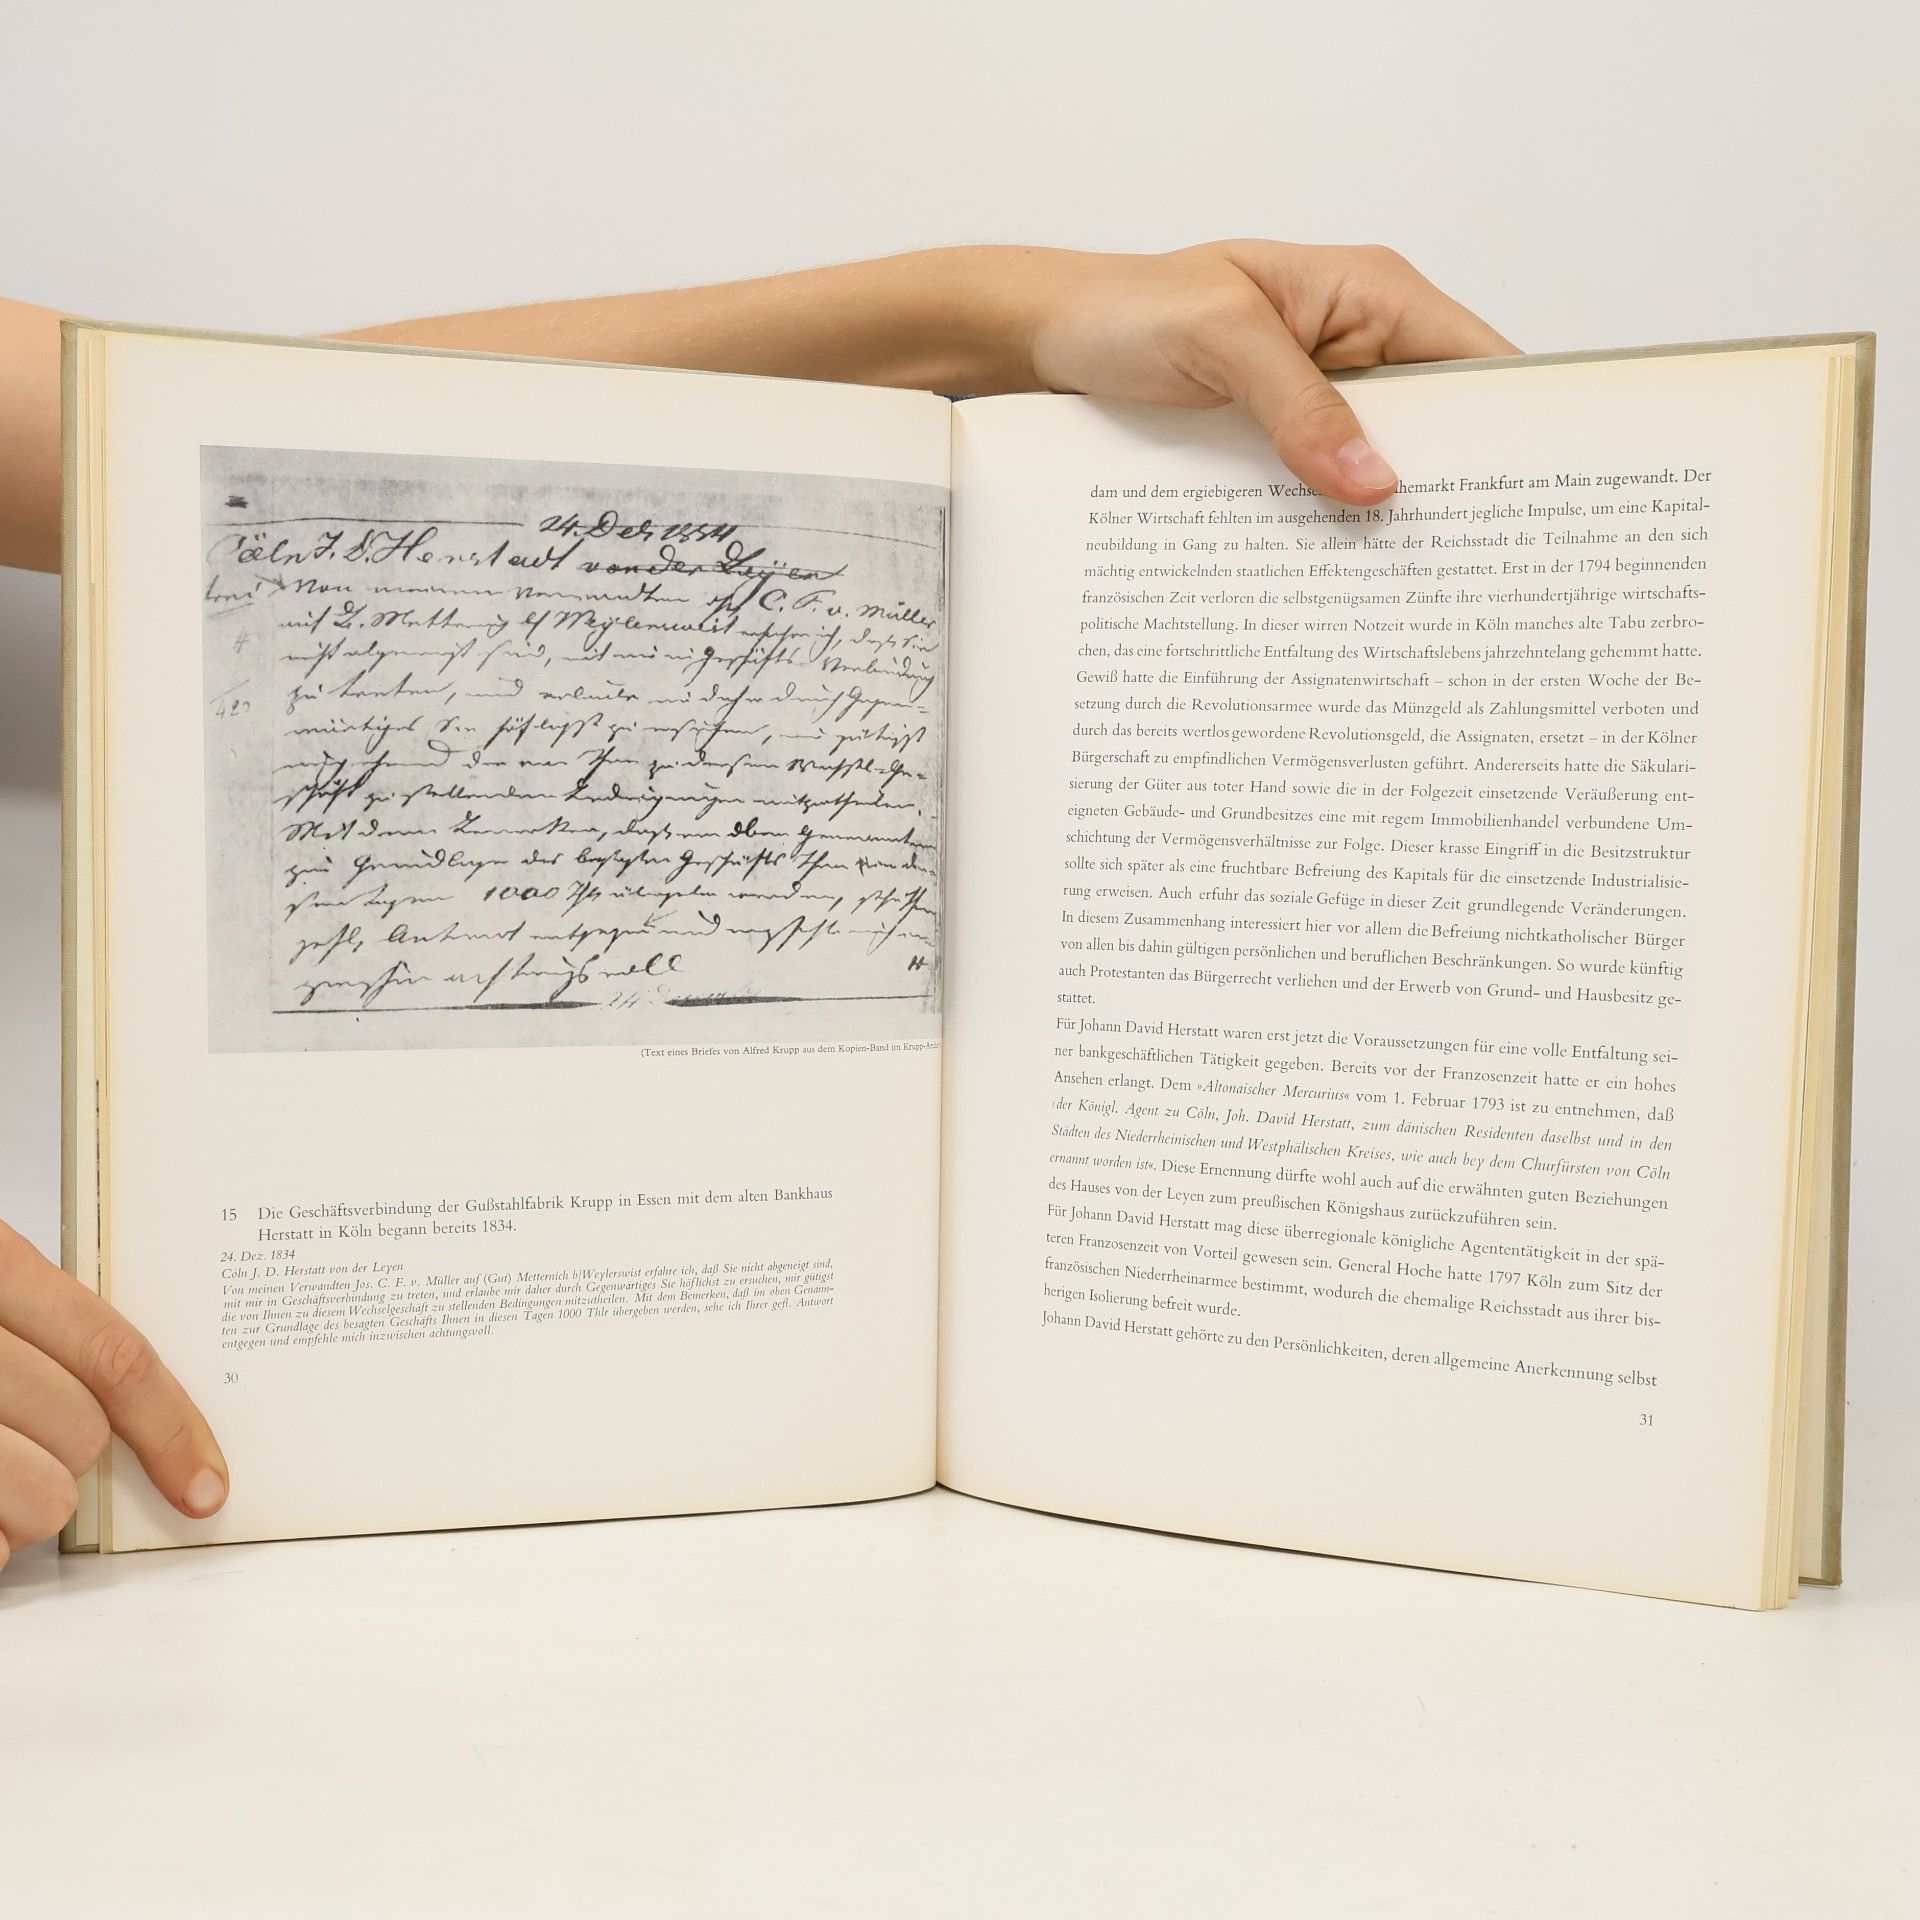 24. Dec 1834
Cöln J. D. Herstadt von der Leÿen
Von meinen Verwandten Jos. C. F. v. Müller
auf G. Metternich b/ Weylerswist erfahre ich, daß Sie
nicht abgeneigt sind, mit mir in Geschäfts-Verbindung
zu treten, und erlaube mir daher durch Gegen-
wärtiges Sie höflichst zu ersuchen, mir gütigst
die von Ihnen zu diesem Wechsel-Ge-
schäft zu stellenden Bedingungen mitzutheilen.
Mit dem Bemerken, daß im oben Genannten
zur Grundlage des besagten Geschäfts Ihnen in
diesen Tagen 1000 Thlr übergeben werden, sehe ich Ihrer
gefl. Antwort entgegen und empfehle mich
inzwischen achtungsvoll
(Text eines Briefes von Alfred Krupp aus dem Kopien-Band im Krupp-Archi
15 Die Geschäftsverbindung der Gußstahlfabrik Krupp in Essen mit dem alten Bankhaus
Herstatt in Köln begann bereits 1834.
24. Dez. 1834
Cöln J. D. Herstatt von der Leyen
Von meinen Verwandten Jos. C. F. v. Müller auf (Gut) Metternich b/Weylerswist erfahre ich, daß Sie nicht abgeneigt sind,
mit mir in Geschäftsverbindung zu treten, und erlaube mir daher durch Gegenwärtiges Sie höflichst zu ersuchen, mir gütigst
die von Ihnen zu diesem Wechselgeschäft zu stellenden Bedingungen mitzutheilen. Mit dem Bemerken, daß im oben Genann-
ten zur Grundlage des besagten Geschäfts Ihnen in diesen Tagen 1000 Thlr übergeben werden, sehe ich Ihrer gefl. Antwort
entgegen und empfehle mich inzwischen achtungsvoll.
30
dam und dem ergiebigeren Wechs hemarkt Frankfurt am Main zugewandt. Der
Kölner Wirtschaft fehlten im ausgehenden 18. Jahrhundert jegliche Impulse, um eine Kapital-
neubildung in Gang zu halten. Sie allein hätte der Reichsstadt die Teilnahme an den sich
mächtig entwickelnden staatlichen Effektengeschäften gestattet. Erst in der 1794 beginnenden
französischen Zeit verloren die selbstgenügsamen Zünfte ihre vierhundertjährige wirtschafts-
politische Machtstellung. In dieser wirren Notzeit wurde in Köln manches alte Tabu zerbro-
chen, das eine fortschrittliche Entfaltung des Wirtschaftslebens jahrzehntelang gehemmt hatte.
Gewiß hatte die Einführung der Assignatenwirtschaft – schon in der ersten Woche der Be-
setzung durch die Revolutionsarmee wurde das Münzgeld als Zahlungsmittel verboten und
durch das bereits wertlos gewordene Revolutionsgeld, die Assignaten, ersetzt – in der Kölner
Bürgerschaft zu empfindlichen Vermögensverlusten geführt. Andererseits hatte die Säkulari-
sierung der Güter aus toter Hand sowie die in der Folgezeit einsetzende Veräußerung ent-
eigneten Gebäude- und Grundbesitzes eine mit regem Immobilienhandel verbundene Um-
schichtung der Vermögensverhältnisse zur Folge. Dieser krasse Eingriff in die Besitzstruktur
sollte sich später als eine fruchtbare Befreiung des Kapitals für die einsetzende Industrialisie-
rung erweisen. Auch erfuhr das soziale Gefüge in dieser Zeit grundlegende Veränderungen.
In diesem Zusammenhang interessiert hier vor allem die Befreiung nichtkatholischer Bürger
von allen bis dahin gültigen persönlichen und beruflichen Beschränkungen. So wurde künftig
auch Protestanten das Bürgerrecht verliehen und der Erwerb von Grund- und Hausbesitz ge-
stattet.
Für Johann David Herstatt waren erst jetzt die Voraussetzungen für eine volle Entfaltung sei-
ner bankgeschäftlichen Tätigkeit gegeben. Bereits vor der Franzosenzeit hatte er ein hohes
Ansehen erlangt. Dem »Altonaischer Mercurius« vom 1. Februar 1793 ist zu entnehmen, daß
›der Königl. Agent zu Cöln, Joh. David Herstatt, zum dänischen Residenten daselbst und in den
Städten des Niederrheinischen und Westphälischen Kreises, wie auch bey dem Churfürsten von Cöln
ernannt worden ist«. Diese Ernennung dürfte wohl auch auf die erwähnten guten Beziehungen
des Hauses von der Leyen zum preußischen Königshaus zurückzuführen sein.
Für Johann David Herstatt mag diese überregionale königliche Agententätigkeit in der spä-
teren Franzosenzeit von Vorteil gewesen sein. General Hoche hatte 1797 Köln zum Sitz der
französischen Niederrheinarmee bestimmt, wodurch die ehemalige Reichsstadt aus ihrer bis-
herigen Isolierung befreit wurde.
Johann David Herstatt gehörte zu den Persönlichkeiten, deren allgemeine Anerkennung selbst
31